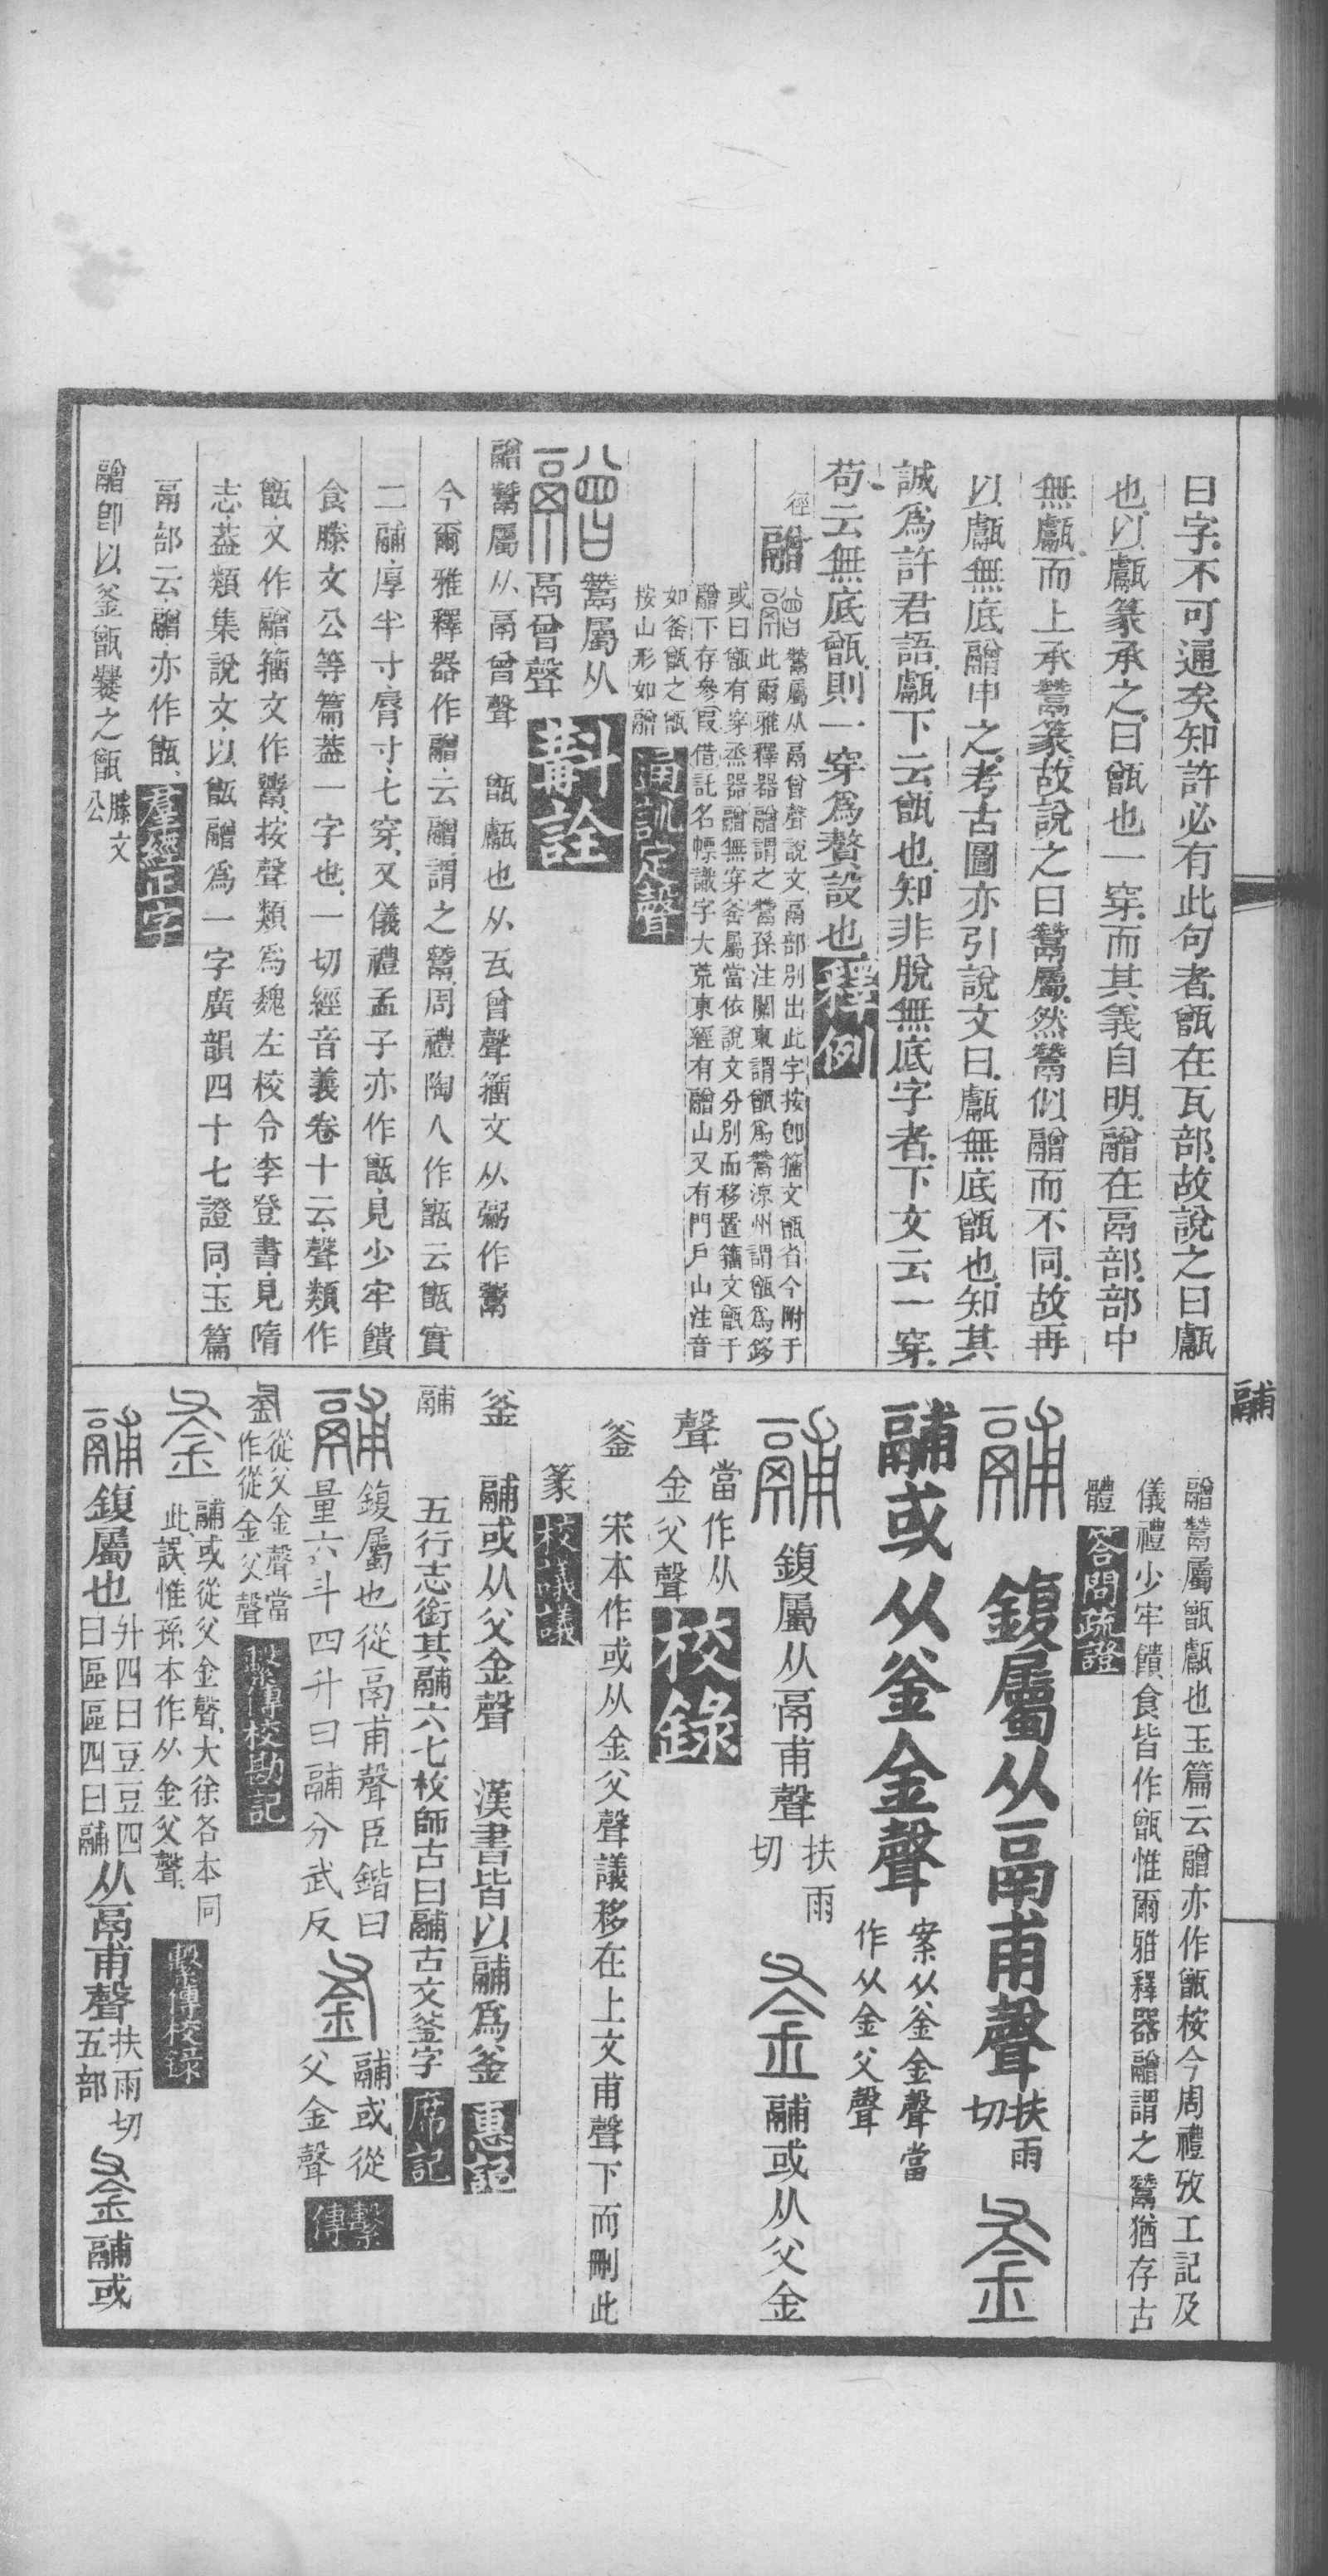 曰字不可通矣知許必有此句者甑在瓦部故說之曰甗
也以甗篆承之曰甑也一穿而其義自明䰝在鬲部部中
無甗而上承鬵篆故說之曰鬵屬然鬵似䰝而不同故再
以甗無底䰝申之考古圖亦引說文曰甗無底甑也知其
誠爲許君語甗下云甑也知非脫無底字者下文云一穿
苟云無底甑則一穿爲贅設也釋例
徑䰝
䰝鬵屬从鬲曾聲說文鬲部別出此字按卽籒文甑省今附于
此爾雅釋器䰝謂之鬵孫注關東謂甑爲鬵涼州謂甑爲鉹
或曰甑有穿烝器䰝無穿釜屬當依說文分別而移置籒文甑于
䰝下存參叚借託名幖識字大荒東經有䰝山又有門戶山注音
如釜甑之甑
按山形如䰝通訓定聲
䰝鬵屬从
鬲曾聲斠詮
䰝鬵屬从鬲曾聲 甑甗也从瓦曾聲籒文从䰜作鬵
今爾雅釋器作䰝云䰝謂之鬵周禮陶人作甑云甑實
二鬴厚半寸脣寸七穿又儀禮孟子亦作甑見少牢饋
食滕文公等篇葢一字也一切經音義卷十云聲類作
甑文作䰝籒文作鬵按聲類爲魏左校令李登書見隋
志葢類集說文以甑䰝爲一字廣韻四十七證同玉篇
鬲部云䰝亦作甑羣經正字
䰝卽以釜甑爨之甑滕文
公
䰝鬵屬甑甗也玉篇云䰝亦作甑桉今周禮攷工記及
儀禮少牢饋食皆作甑惟爾雅釋器䰝謂之鬵猶存古
體答問疏證
鬴
鬴鍑屬从鬲甫聲扶雨
切釜
鬴或从釜金聲案从釜金聲當
作从金父聲
鬴鍑屬从鬲甫聲扶雨
切釜鬴或从父金
聲當作从
金父聲校錄
釜 宋本作或从金父聲議移在上文甫聲下而刪此
篆校議議
釜 鬴或从父金聲 漢書皆以鬴爲釜惠記
鬴 五行志銜其鬴六七枚師古曰鬴古文釜字席記
鬴鍑屬也從鬲甫聲臣鍇曰
量六斗四升曰鬴分武反釜鬴或從
父金聲繫
傳
從父金聲當
作從金父聲繫傳校勘記
釜鬴或從父金聲大徐各本同
此誤惟孫本作从金父聲繫傳校錄
鬴鍑屬也升四曰豆豆四
曰區區四曰鬴从鬲甫聲扶雨切
五部釜鬴或